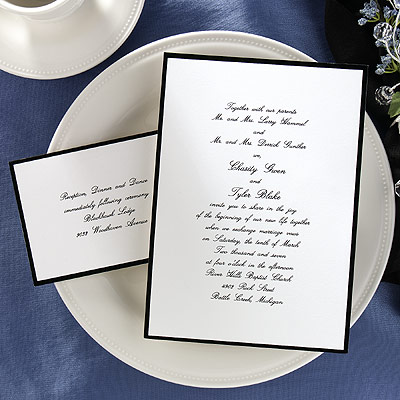 Together with our parents
Mr. and Mrs. Larry Hammel
and
Mr. and Mrs. Derrick Gunther
we,
Chasity Gwen
and
Tyler Blake
invite you to share in the joy
of the beginning of our new life together
when we exchange marriage vows
on Saturday, the tenth of March
Two thousand and seven
at four o'clock in the afternoon
River Hills Baptist Church
4902 Rock Street
Battle Creek, Michigan
Reception, Dinner and Dance
immediately following ceremony
Blackhawk Lodge
9033 Woodhaven Avenue